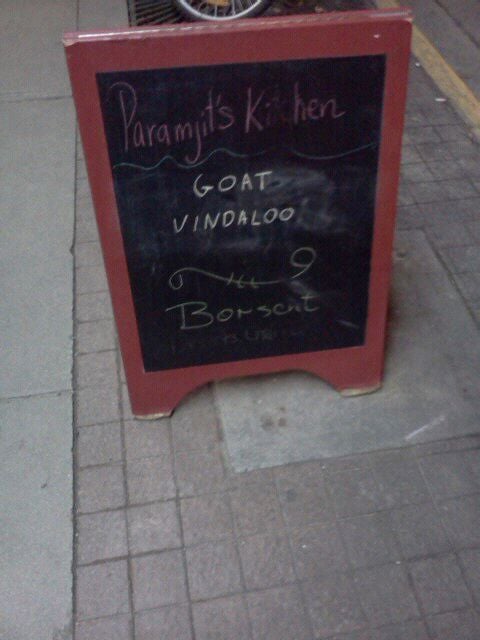 Paramjit's Kitchen
GOAT
VINDALOO
Borscht